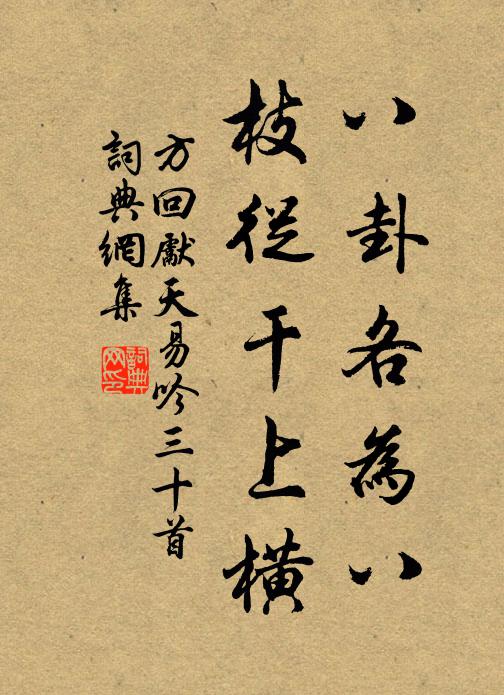 八卦各為八
枝從干上橫
方回獻天易吟三十首
詞典網集
詞典
网印